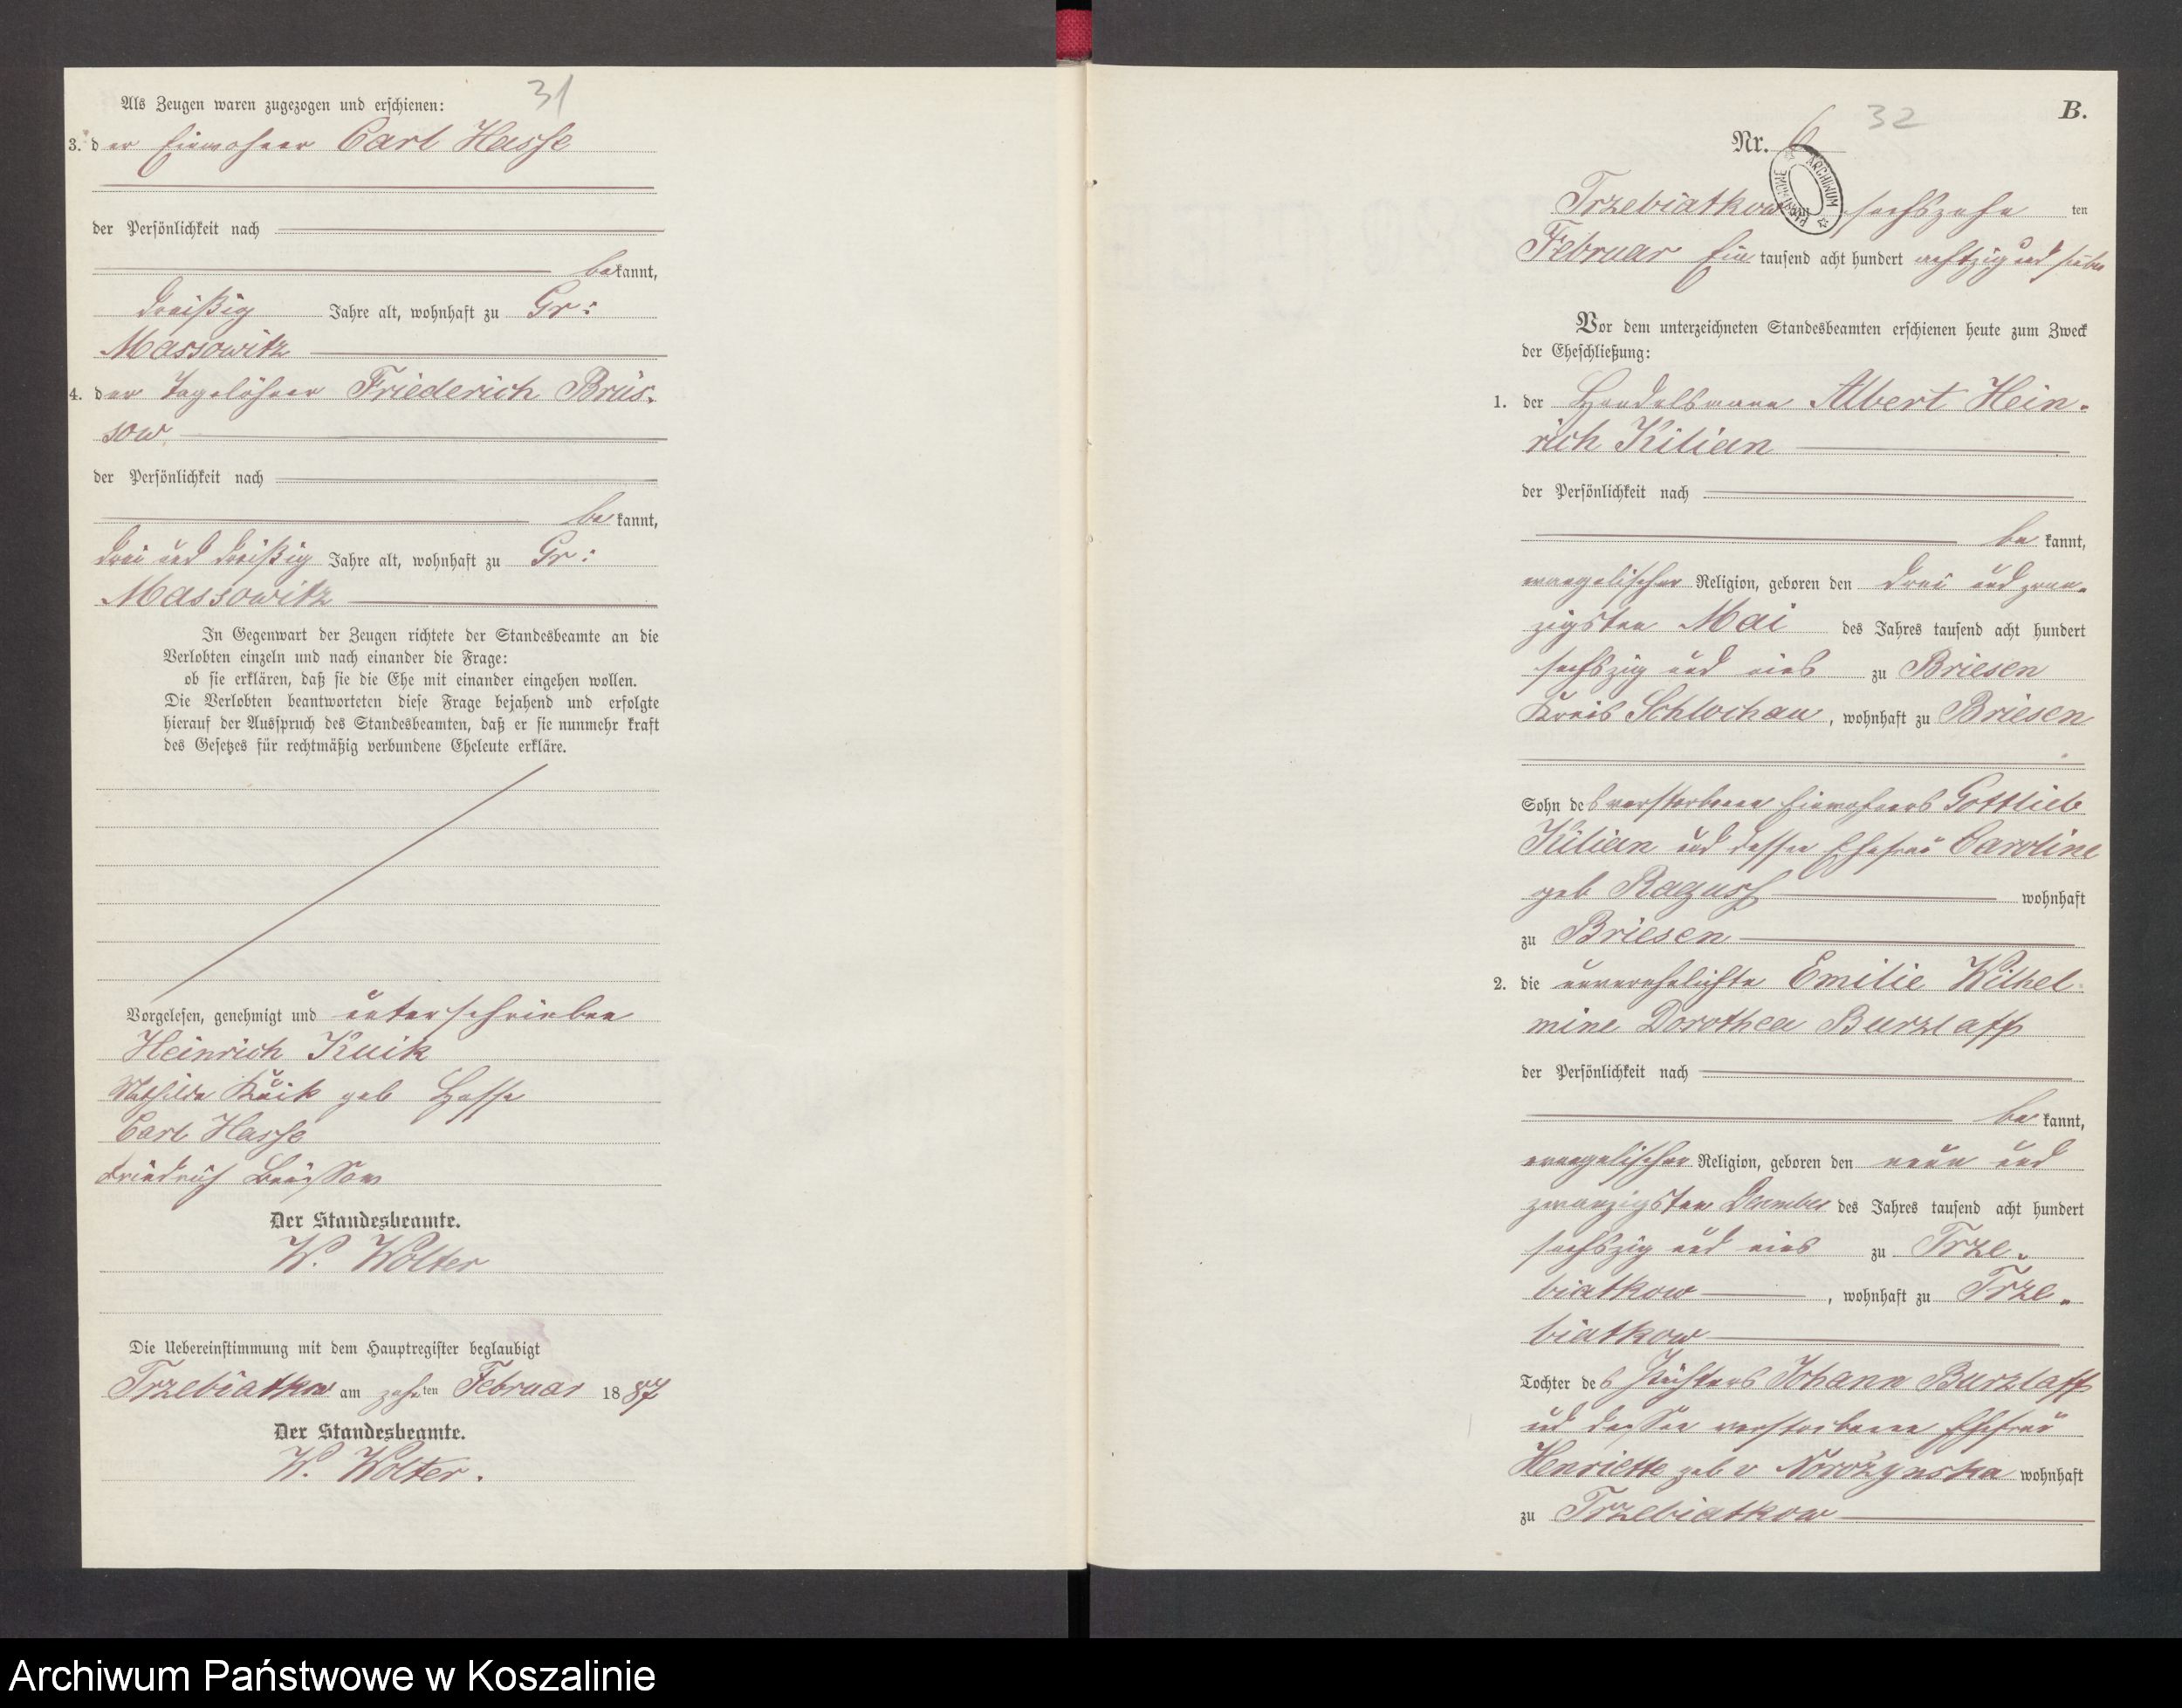 31
Als Zeugen waren zugezogen und erschienen:
3. der Einwohner Carl Hasse
der Persönlichkeit nach
bekannt,
dreißig Jahre alt, wohnhaft zu Gr:
Massowitz
4. der Tagelöhner Friederich Brüs-
sow
der Persönlichkeit nach
bekannt,
drei und dreißig Jahre alt, wohnhaft zu Gr:
Massowitz
In Gegenwart der Zeugen richtete der Standesbeamte an die
Verlobten einzeln und nach einander die Frage:
ob sie erklären, daß sie die Ehe mit einander eingehen wollen.
Die Verlobten beantworteten diese Frage bejahend und erfolgte
hierauf der Ausspruch des Standesbeamten, daß er sie nunmehr kraft
des Gesetzes für rechtmäßig verbundene Eheleute erkläre.
Vorgelesen, genehmigt und unterschrieben
Heinrich Kuik
Mathilde Kuik geb Hasse
Carl Hasse
Friedrich Brüssow
Der Standesbeamte.
W. Wolter
Die Uebereinstimmung mit dem Hauptregister beglaubigt
Trzebiatkow am zehnten Februar 1887
Der Standesbeamte.
W. Wolter.
B.
32
Nr. 6
ARCHIWUM
Trzebiatkow am sechszehnten
Februar Ein tausend acht hundert achtzig und sieben
Vor dem unterzeichneten Standesbeamten erschienen heute zum Zweck
der Eheschließung:
1. der Handelsmann Albert Hein-
rich Kilian
der Persönlichkeit nach
bekannt,
evangelischer Religion, geboren den drei und zwan-
zigsten Mai des Jahres tausend acht hundert
sechszig und eins zu Briesen
Kreis Schlochau, wohnhaft zu Briesen
Sohn des verstorbenen Einwohners Gottlieb
Kilian und dessen Ehefrau Caroline
geb wohnhaft
zu Briesen
2. die unverehelichte Emilie Wilhel
mine Dorothea Burzlaff
der Persönlichkeit nach
bekannt,
evangelischer Religion, geboren den neun und
zwanzigsten December des Jahres tausend acht hundert
sechszig und eins zu Trze-
biatkow, wohnhaft zu Trze-
biatkow
Tochter des Johann Burzlaff
und dessen verstorbene Ehefrau
Henriette geb v wohnhaft
zu Trzebiatkow
Archiwum Państwowe w Koszalinie